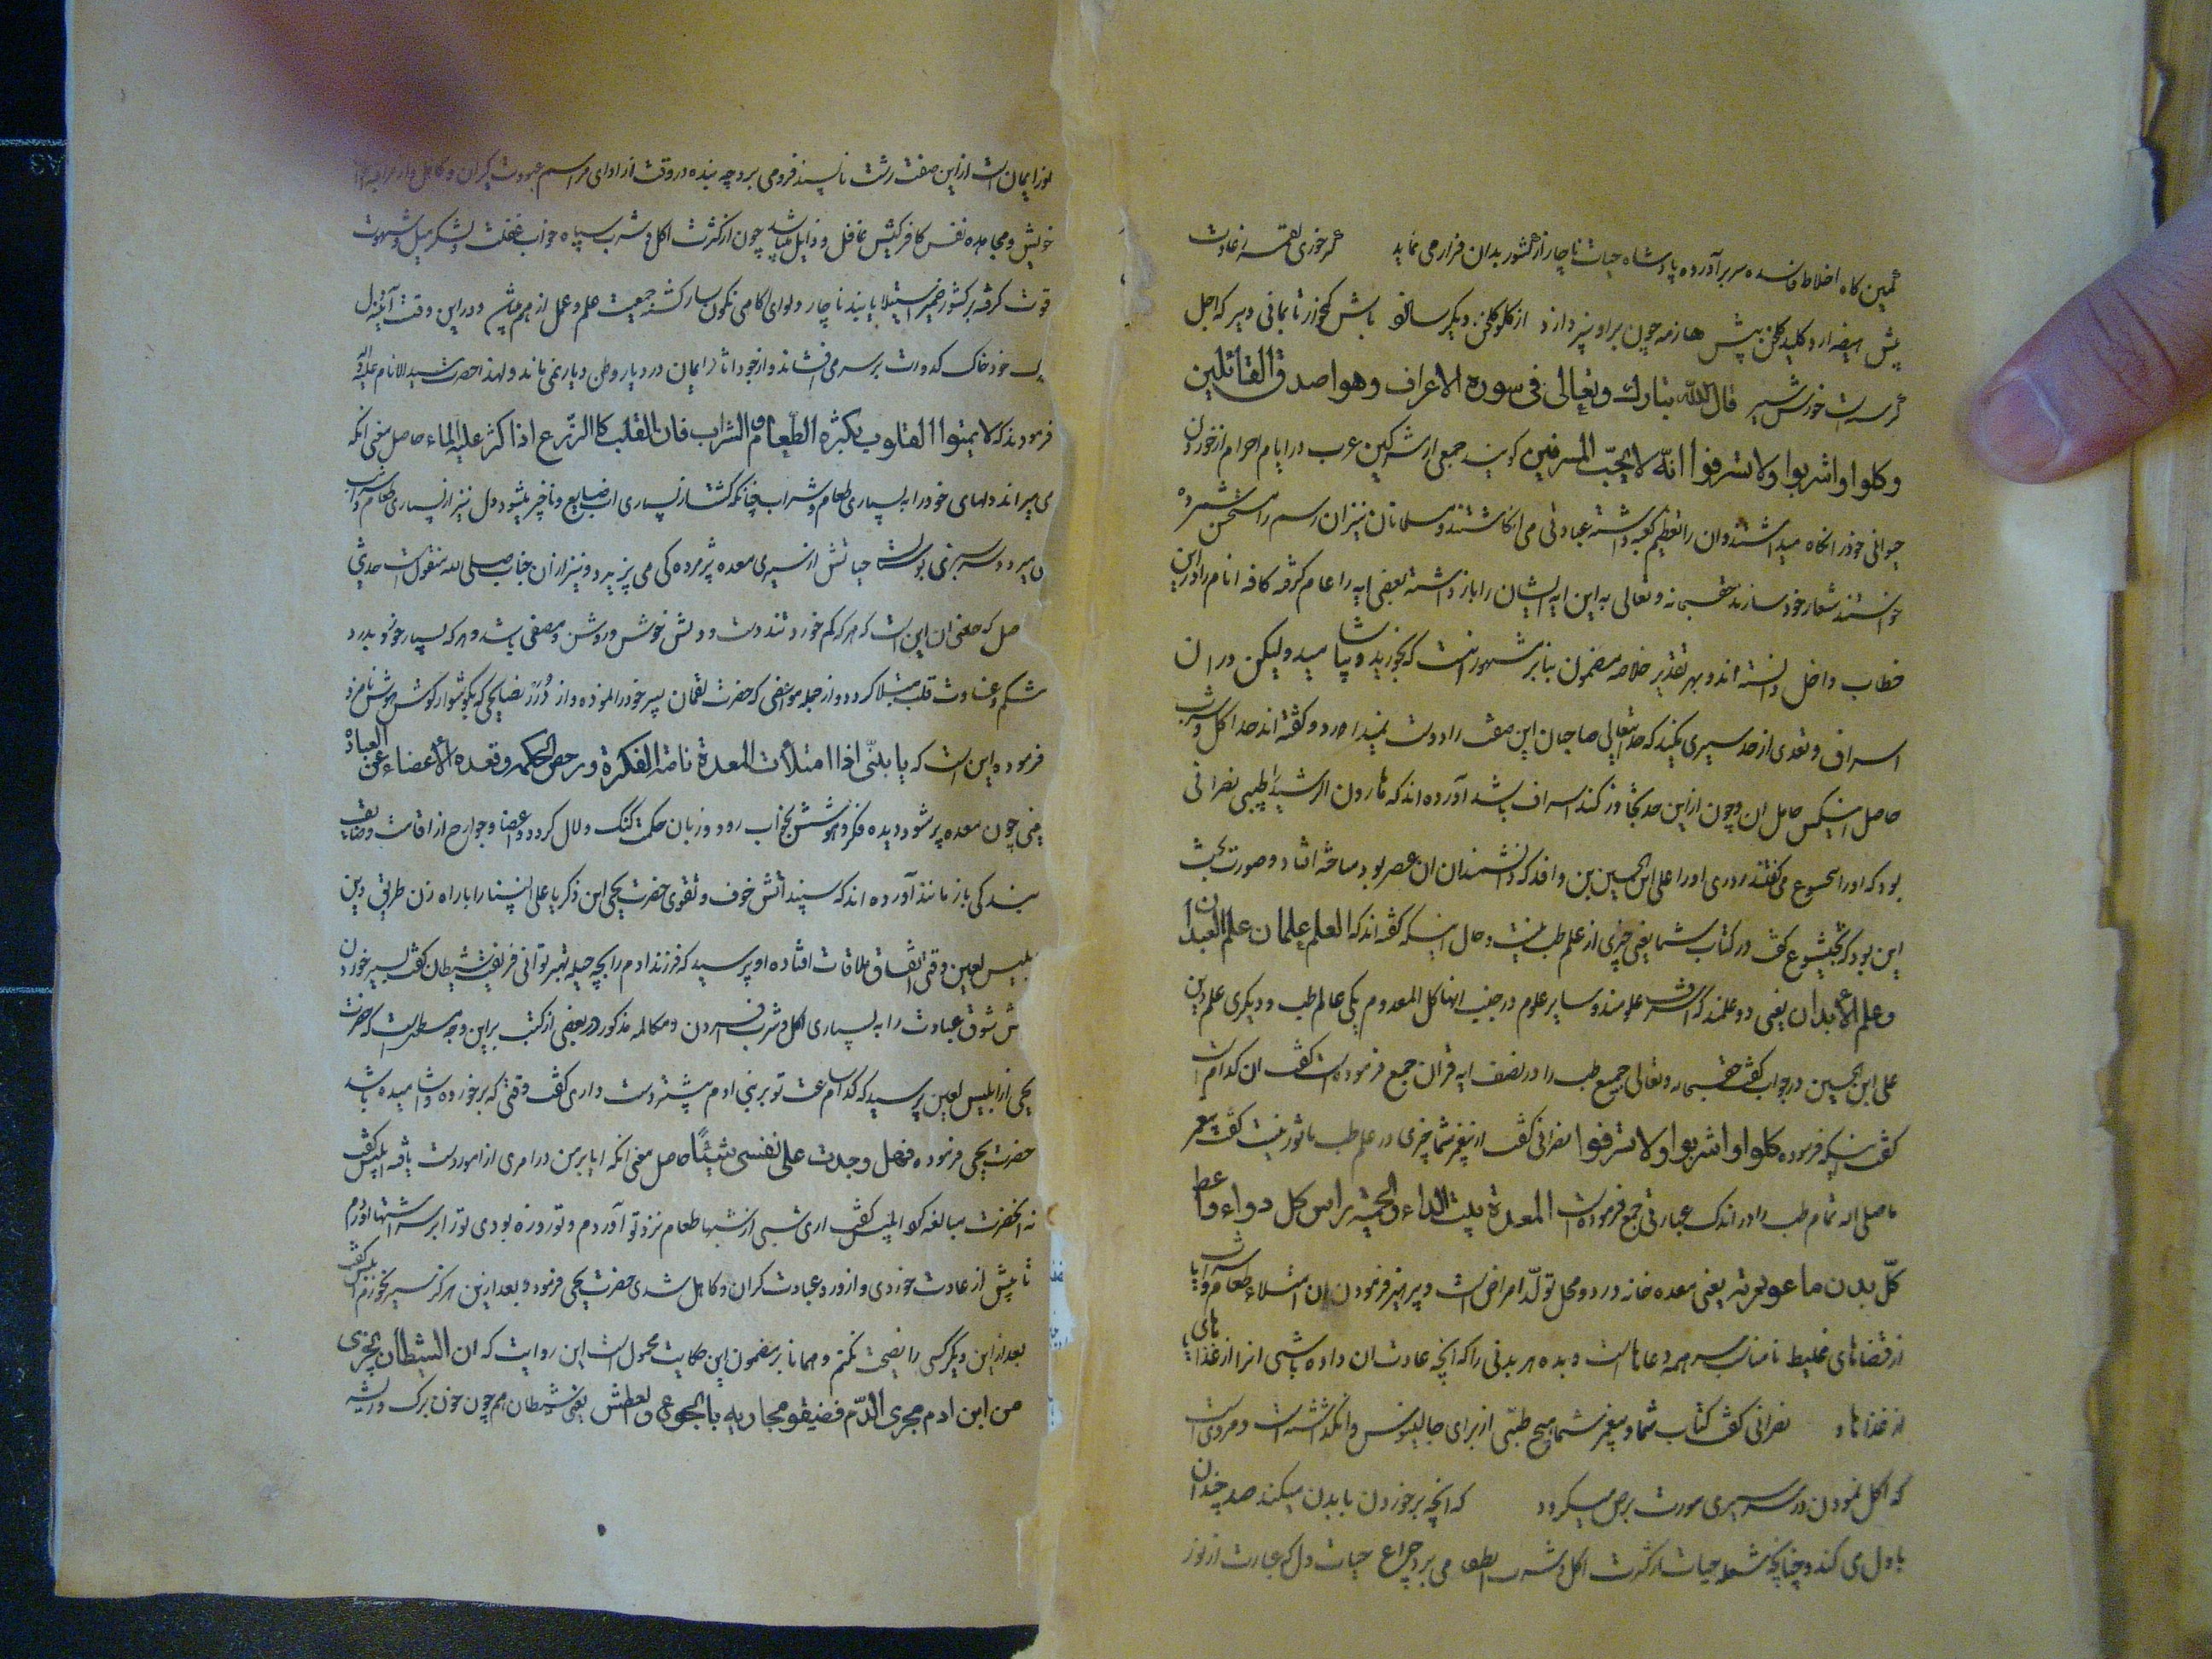 کمین کاه اخلاط فاسده سر برآورده پادشاه حیات ناچار از کشور بدان فرار می نماید کم خوری لقمه ز غارت
پیش هیضه ارد کلید کلخن پیش هازمه چون بر او نپردازد از کلو کلخن دیکر سازد باش کم خوار تا بمانی دیر که اجل
کرسنه است خورش سیر قال الله تبارک وتعالی فی سوره الاعراف وهو اصدق القائلین
وکلوا واشربوا ولا تسرفوا انّه لا یحبّ المسرفین کویند جمعی از مشرکین عرب در ایام احرام از خوردن
حیوانی خود را نکاه میداشتند وان را تعظیم کعبه دانسته عبادتی می انکاشتند ومسلمانان نیز ان رسم را مستحسن شمرده
خواستند شعار خود سازند حقسبحانه وتعالی به این ایه ایشان را باز داشته بعضی ایه را عام کرفته کافه انام را در این
خطاب داخل دانسته اند و بهر تقدیر خلاصه مضمون بنابر مشهور انست که بخورید و بیاشامید ولیکن در ان
اسراف و تعدی از حد سیری نکنید که خدایتعالی صاحبان این صفت را دوست نمیدارد و کفته اند حد اکل و شرب
حاصل اینکه این وچون ازین حد تجاوز کند اسراف باشد آورده اند که هارون الرشید را طبیبی نصرانی
بود که او را بختیشوع می کفتند روزی او را علی ابن الحسین بن واقد که از دانشمندان ان عصر بود مباحثه افتاد و صورت بحث
این بود که بختیشوع کفت در کتاب شما یعنی چیزی از علم طب نیست و حال اینکه کفته اند که العلم علمان علم الابدان
وعلم الأدیان یعنی دو علمند که اشرف علومند و سایر علوم در جنب انها کل المعدوم یکی عالم طب و دیکری علم دین
علی ابن الحسین در جواب کفت حقسبحانه وتعالی جمیع طب را در نصف ایه قرآن جمع فرموده است کفت ان کدام است
کفت اینکه فرموده کلوا واشربوا ولا تسرفوا نصرانی کفت از پیغمبر شما چیزی در علم طب ماثور نیست کفت پیغمبر
ما صلی الله تمام طب را در اندک عبارتی جمع فرموده است المعدة بیت الداء والحمیة راس کل دواء واعط
کلّ بدن ما عودته یعنی معده خانه درد و محل تولّد امراض است و پرهیز فرمودن ان امتلاء طعام و شراب یا
از غذاهای غلیظ نامناسب سر همه دواهاست و بده هر بدنی را که آنچه عادت ان داده باشی انرا از غذاهای
از غذاها و نصرانی کفت کتاب شما و پیغمبر شما هیچ طبّی از برای جالینوس وانکذاشته است و مروی است
که اکل نمودن در سر سیری مورث برص میکردد که انچه پرخوردن با بدن میکند صد چندان
با دل می کند و چنانچه شعله حیات از کثرت اکل و شرب انطفا می پذیرد چراغ حیات دل که عبارت از نور
نور ایمان است از این صفت زشت ناپسند فرو می میرد چه بنده در وقت از ادای مراسم عبودیت کران و کاهل و از مراقبه
خویش و مجاهده نفس کافر کیش غافل و ذاهل میباشد چون از کثرت اکل و شرب سپاه خواب غفلت و لشکر میل و شهوت
قوت کرفته بر کشور ضمیر استیلا یابند ناچار و لوای اکاهی نکون سار کشته جمعیت علم وعمل از هم می پاشد و در این وقت آئینه دل
خود خاک کدورت بر سر می افشاند و از وجود اثار ایمان در دیار وطن دیار نمی ماند و لهذا حضرت سید الانام علیه وآله
فرمودند که لا یمیتوا القلوب بکثرة الطّعام والشراب فان القلب کالزّرع اذا کثر علیه الماء حاصل معنی انکه
می میراند دلهای خود را به بسیاری طعام و شراب چنانکه کشتزار از بسیاری اب ضایع و ناچیز میشود دل نیز از بسیاری طعام و شراب
می میرد و سرسبزی بوستان حیاتش از سیری معده پژمرده کی می پذیرد و نیز از ان جناب صلی الله منقول است حدیثی
حاصل که معنی ان این است که هر که کم خورد تندرست و دلش خوش و روشن ومصفی باشد و هر که بسیار خورد بدرد
شکم و غساوت قلب مبتلا کردد و از جمله مواعظی که حضرت لقمان پسر خود را نموده و از دُرَر نصایحی که بکوشوار کوش هوشش نامزد
فرموده این است که یا بنیّ اذا امتلأت المعدة نامت الفکرة وخرصت الحکمة وقعدت الأعضاء عن العبادة
یعنی چون معده پر شود دیده فکر و هوشش بخواب رود و زبان حکمت کنک و لال کردد و اعضا و جوارح از اقامت وظایف
بندکی باز مانند آورده اند که سپند اتش خوف و تقوی حضرت یحیی ابن زکریا علی نبینا را با راه زن طریق دین
ابلیس لعین وقتی اتّفاق ملاقات افتاده او پرسید که فرزند ادم را بچه حیله بهتر توانی فریفت شیطان کفت بسیر خوردن
اتش شوق عبادت را به بسیاری اکل و شرب فسردن و مکالمه مذکور در بعضی از کتب بر این وجه مسطور است که حضرت
یحیی از ابلیس لعین پرسید که کدام ساعت تو بر بنی ادم بیشتر دست داری کفت وقتی که پر خورده و اشامیده باشد
حضرت یحیی فرموده فهل وجدت علی نفسی شیئًا حاصل معنی انکه ایا بر من در امری از امور دست یافته ابلیس کفت
نه انحضرت مبالغه کرد ابلیس کفت اری شبی از شبها طعام نزد تو آوردم و تو روزه بودی تو را بر سر اشتها اوردم
تا بیش از عادت خوردی و از ورد عبادت کران و کاهل شدی حضرت یحیی فرمود و بعد از این هرکز سیر نخورم ابلیس کفت
بعد از این دیکر کسی را نصیحت نکنم و همانا بر مضمون این حکایت محمول است این روایت که ان الشیطان یجری
من ابن ادم مجری الدّم فضیقو مجاریه بالجوع والعطش یعنی شیطان هم چون خون برک و ریشه